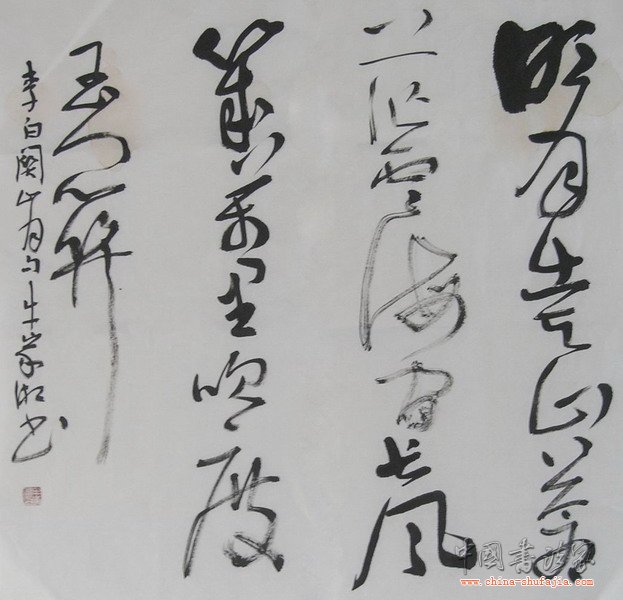 明月出天山蒼
茫雲海间长風
幾万里吹度
玉门關
李白関山月句牛家书
中国书法家
www.china-shufajia.com